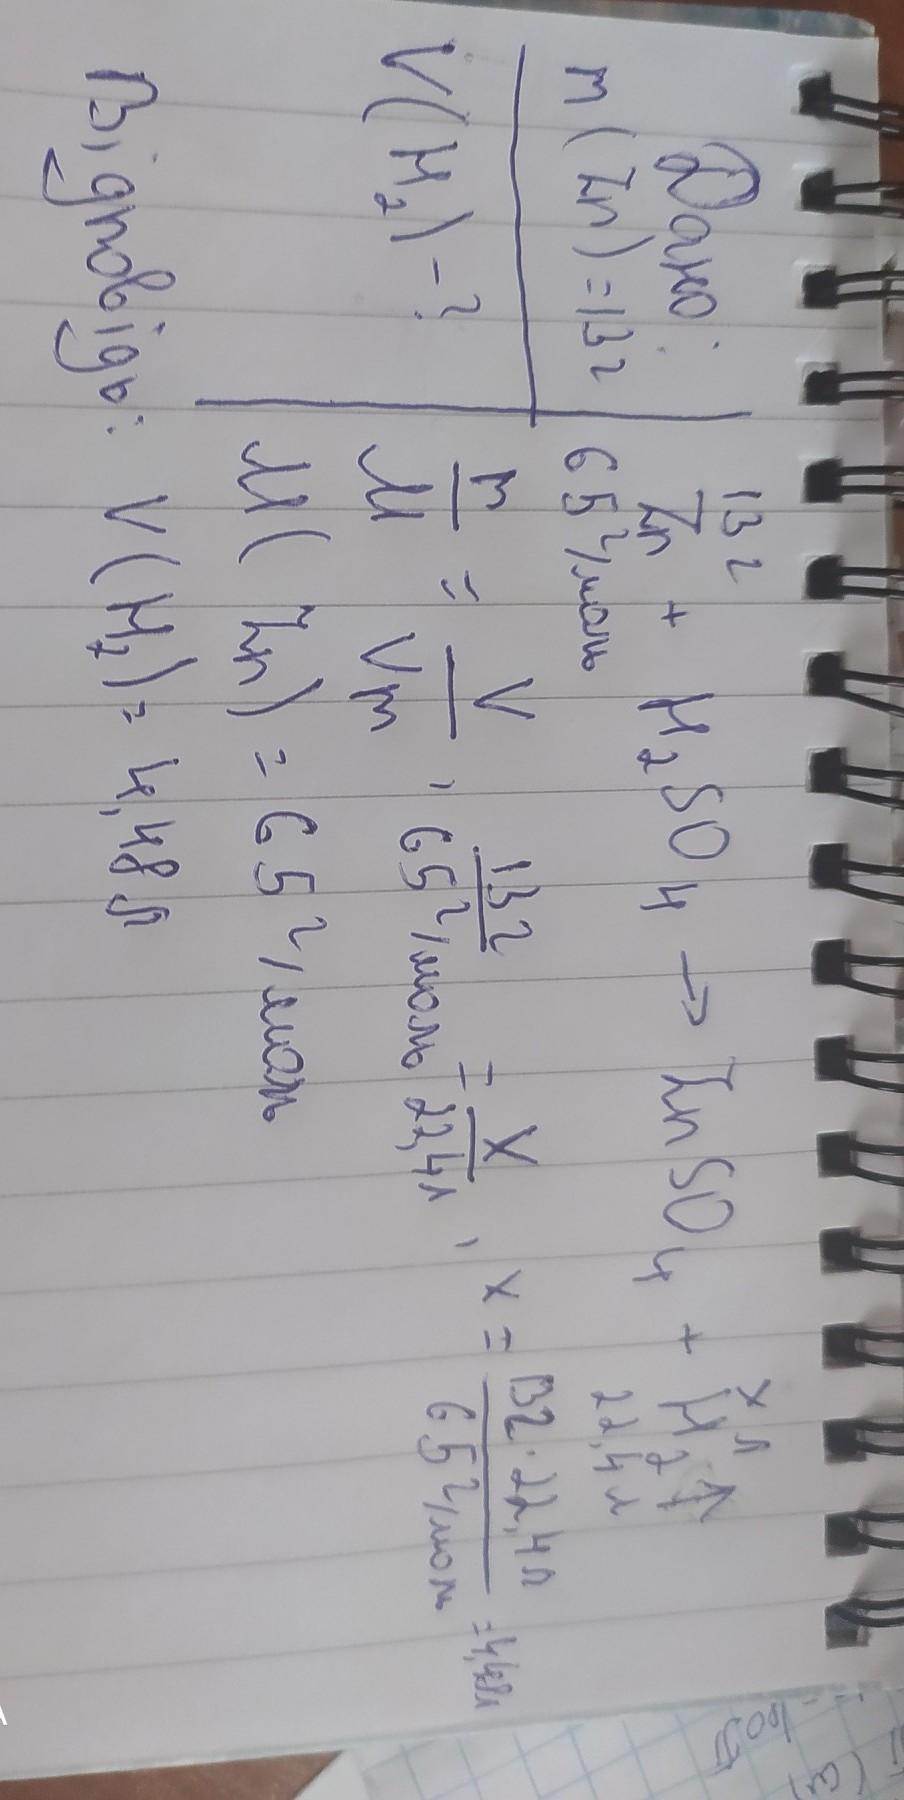 Дано:
m(Zn)=13г
V(H₂)-?
13г
x л
Zn + H₂SO₄ → ZnSO₄ + H₂↑
65г/моль
22,4л
m/M = V/Vm, 13г/65г/моль = X/22,4л, x = 13г·22,4л/65г/моль =4,48л
M(Zn)=65г/моль
Відповідь: V(H₂)=4,48л